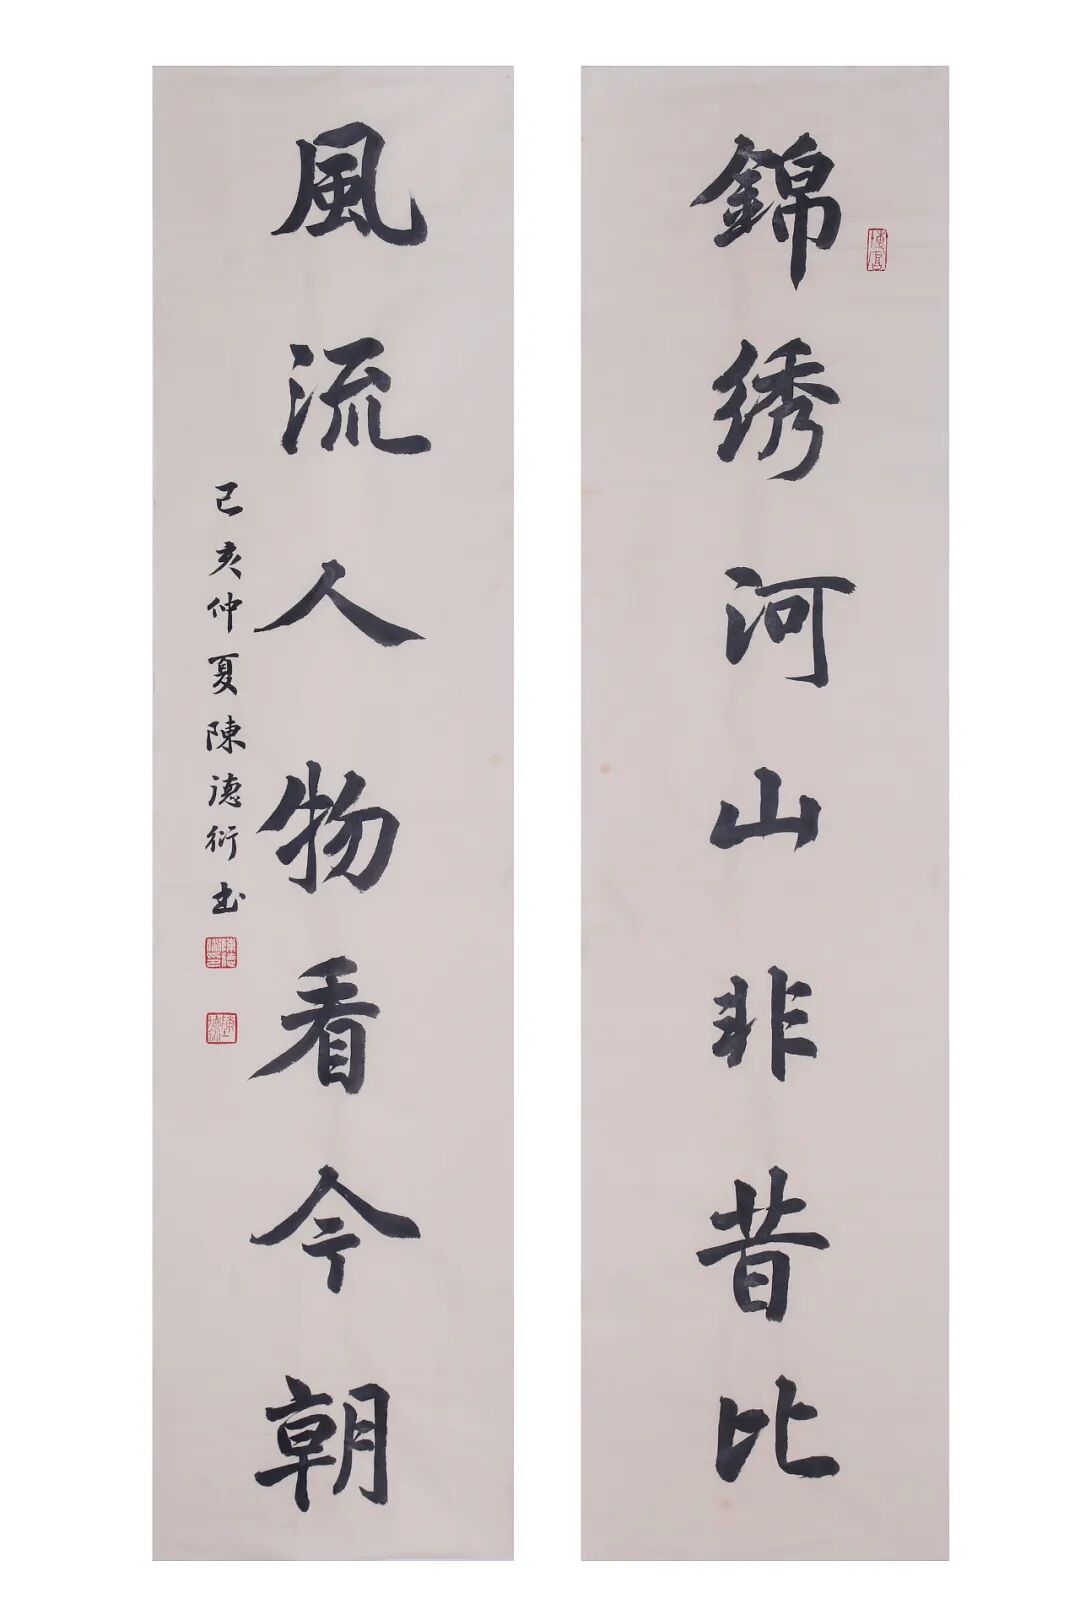 錦绣河山非昔比
風流人物看今朝
己亥仲夏陳德衍书